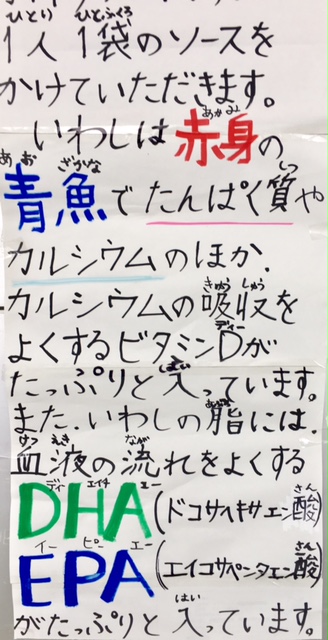 1人1袋のソースを
かけていただきます。
いわしは赤身の
青魚でたんぱく質や
カルシウムのほか、
カルシウムの吸収を
よくするビタミンDが
たっぷりと入っています。
また、いわしの脂には、
血液の流れをよくする
DHA(ドコサヘキサエン酸)
EPA(エイコサペンタエン酸)
がたっぷりと入っています。